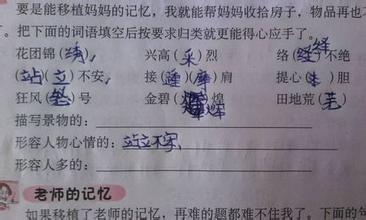 要是能移植妈妈的记忆，我就能帮妈妈收拾房子，物品再也
。把下面的词语填空后按要求归类就更能得心应手了。
花团锦（绣） 兴高（采）烈 络（绎）不绝
（站立）不安 接（踵摩）肩 提心（）胆
狂风（）号 金碧（辉）煌 田地荒（芜）
描写景物的：
形容人物心情的：站立不安，
形容人多的：
老师的记忆
如果移植了老师的记忆，再难的题都难不住我了。下面的